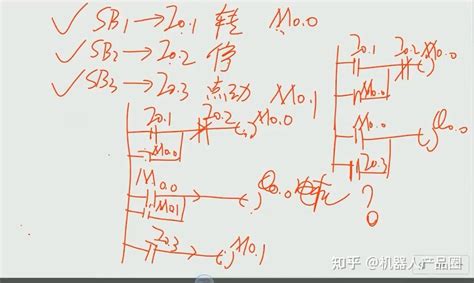 ✓ SB1 → I0.1 转 M0.0
✓ SB2 → I0.2 停
✓ SB3 → I0.3 点动 M0.1
I0.1 I0.2 M0.0
M0.0
M0.0 Q0.0 电车
M0.1
I0.3 M0.1
I0.1 I0.2 M0.0
M0.0
M0.0 Q0.0
I0.3
?
知乎 @机器人产品圈